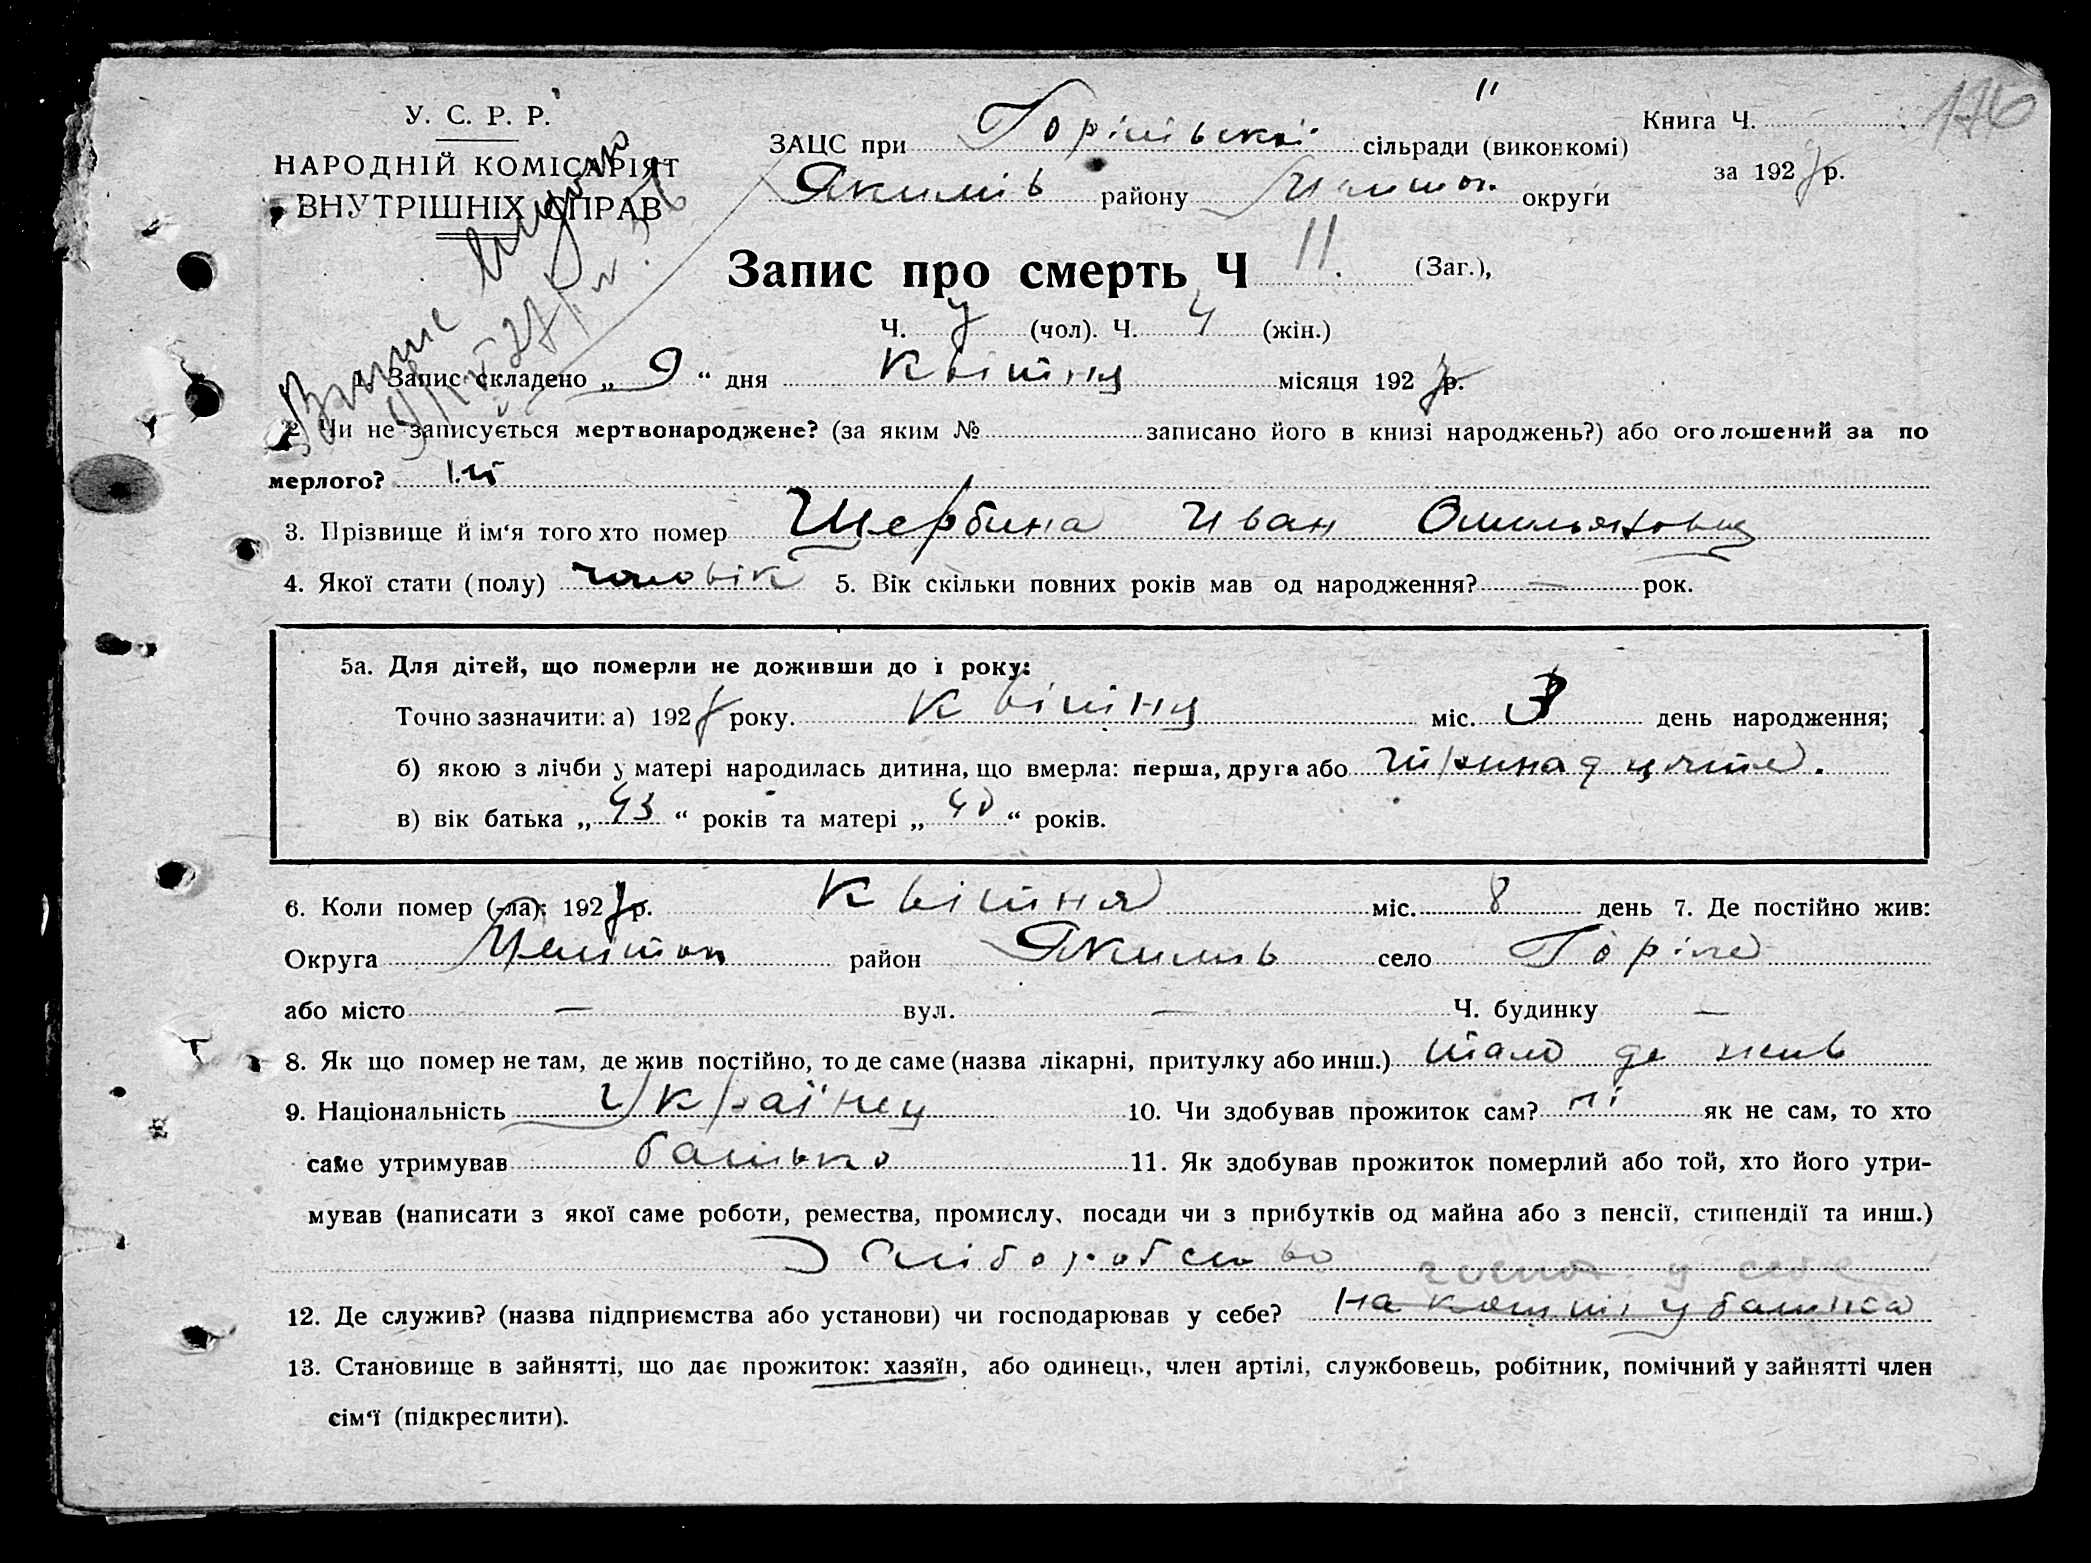 У. С. Р. Р.
НАРОДНІЙ КОМІСАРІЯТ
ВНУТРІШНІХ СПРАВ
11
176
Книга Ч.
ЗАЦС при Горільській сільради (виконкомі)
за 1927 р.
Якимів району Мелітоп. округи
Запис про смерть Ч 11. (Заг.),
Ч. 7 (чол). Ч. 4 (жін.)
1. Запис складено „ 9 “ дня Квітня місяця 1927 р.
2. Чи не записується мертвонароджене? (за яким № записано його в книзі народжень?) або оголошений за по
мерлого? ні
3. Прізвище й ім‘я того хто помер Щербина Иван Омельянович
4. Якої стати (полу) чоловік 5. Вік скільки повних років мав од народження? — рок.
5а. Для дітей, що померли не доживши до 1 року:
Точно зазначити: а) 1927 року. Квітня міс. 3 день народження;
б) якою з лічби у матері народилась дитина, що вмерла: перша, друга або тринадцята.
в) вік батька „ 43 “ років та матері „ 40 “ років.
6. Коли помер (-ла): 1927 р. Квітня міс. 8 день 7. Де постійно жив:
Округа Мелітоп район Якимів село Горіле
або місто — вул. — Ч. будинку —
8. Як що помер не там, де жив постійно, то де саме (назва лікарні, притулку або инш.) тамо де жив
9. Національність Українец 10. Чи здобував прожиток сам? ні як не сам, то хто
саме утримував батько 11. Як здобував прожиток померлий або той, хто його утри-
мував (написати з якої саме роботи, ремества, промислу, посади чи з прибутків од майна або з пенсії, стипендії та инш.)
З хліборобство
господ. у себе
12. Де служив? (назва підприємства або установи) чи господарював у себе? на кошті у батька
13. Становище в зайнятті, що дає прожиток: хазяїн, або одинець, член артілі, службовець, робітник, помічний у зайнятті член
сім‘ї (підкреслити).